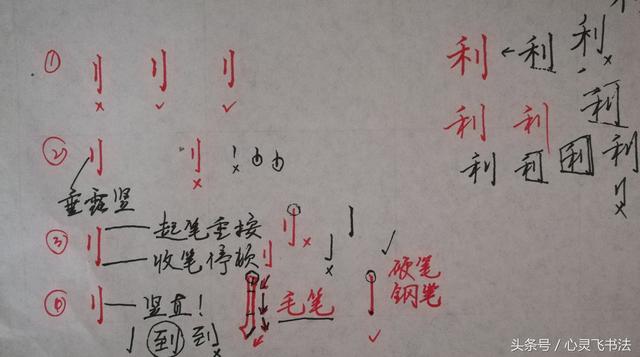 ① 刂 刂 刂
× ✓ ✓
利 ← 利 利 ×
利
利 利
利 利 利 利 ×
② 刂 刂 ×
垂露竖
③ 刂 起笔重按
收笔停顿
×
× ✓
硬笔
钢笔
刂 竖直!
毛笔
✓
亅 到 到 ×
头条号／心灵飞书法